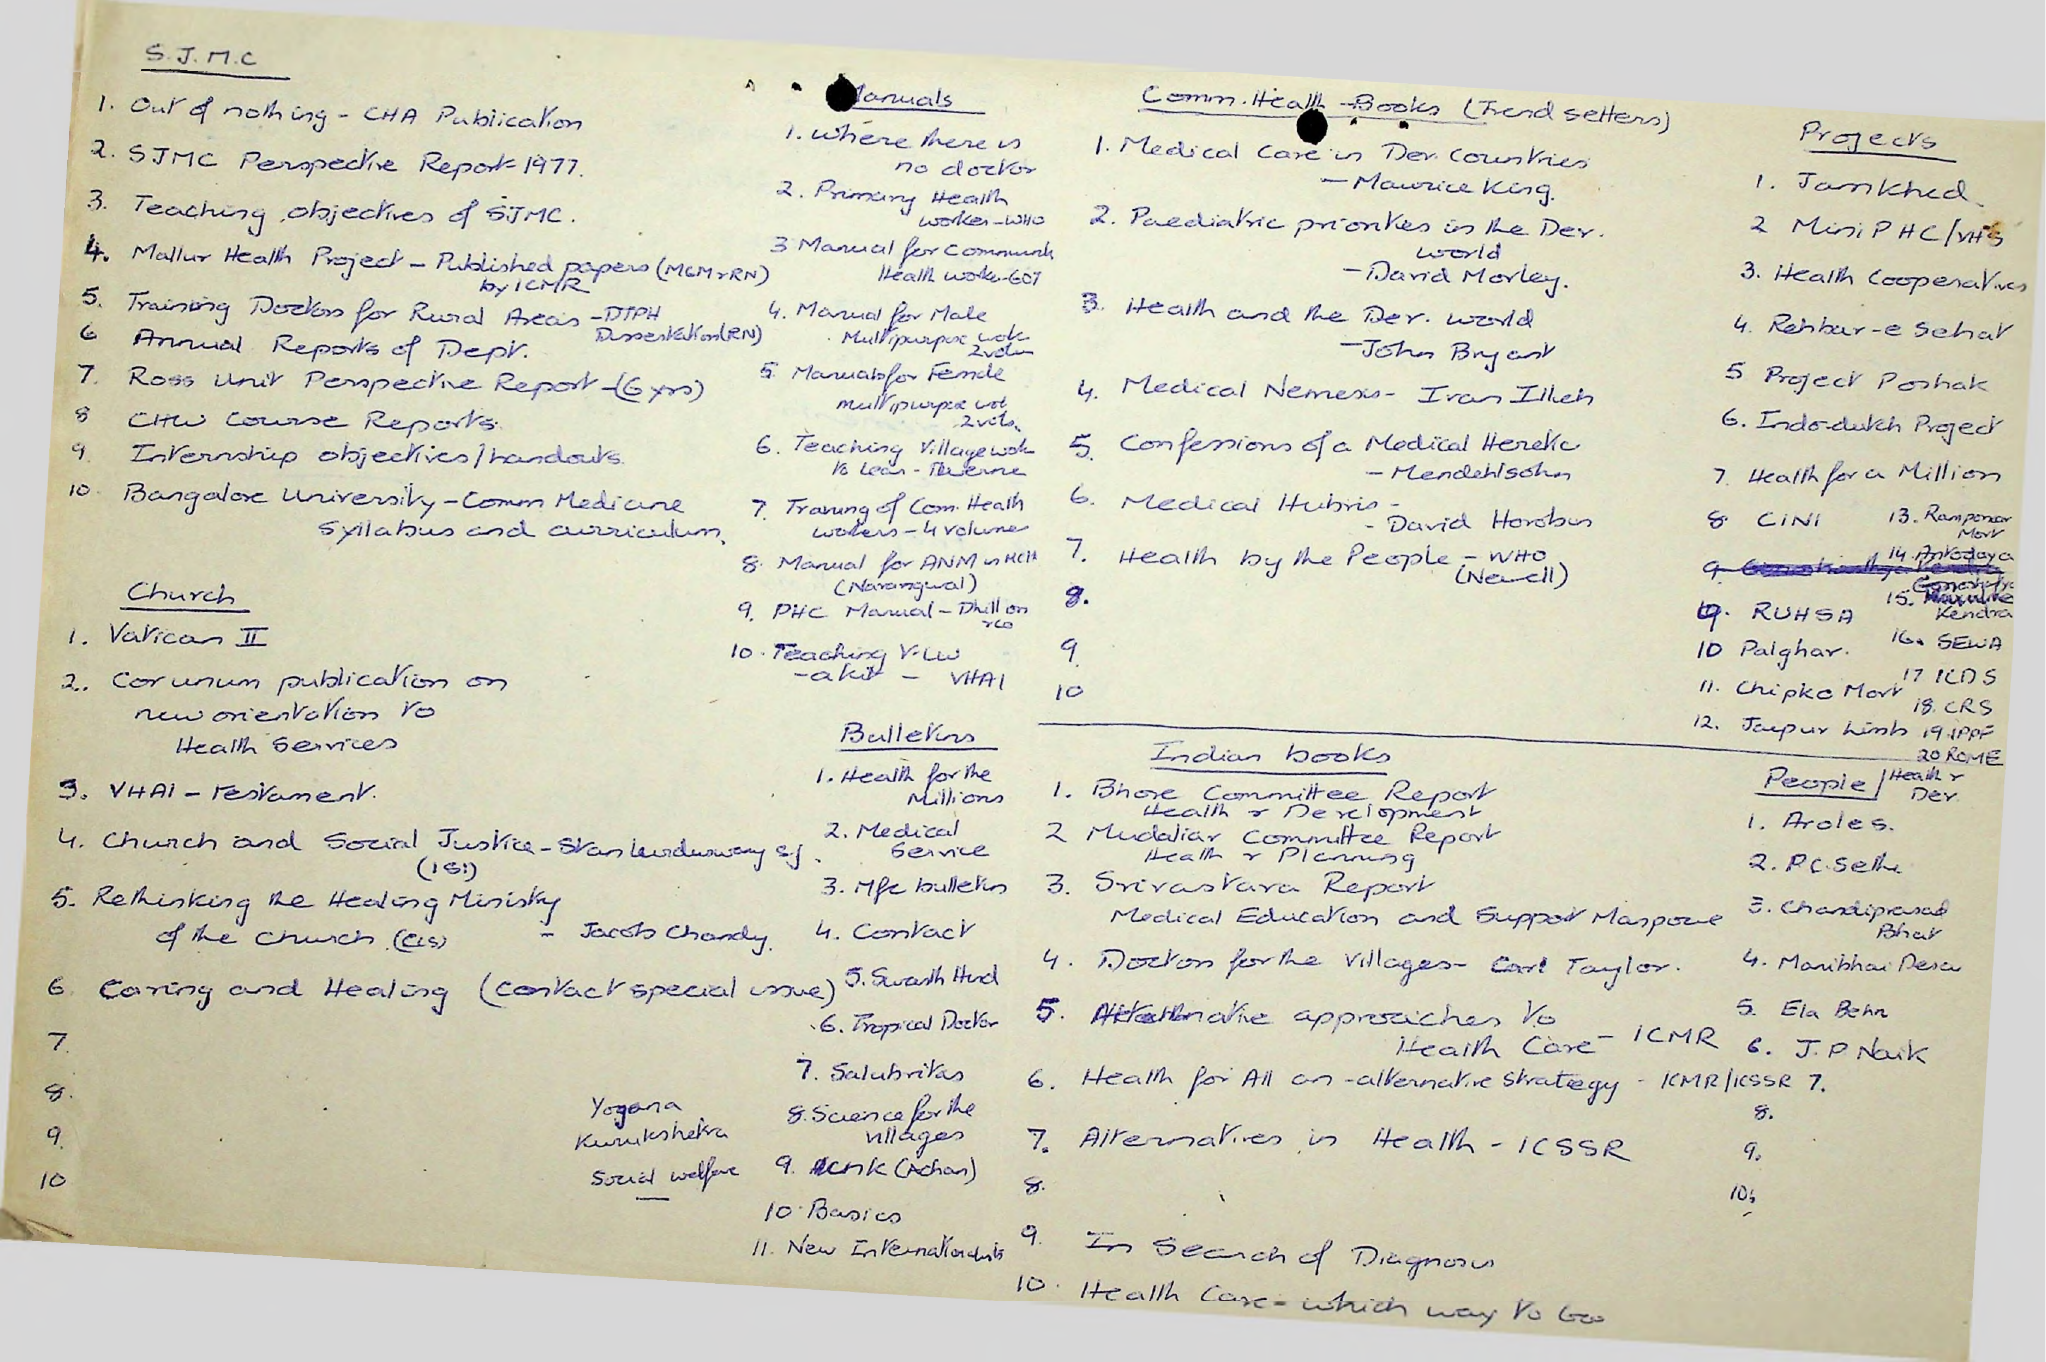 S.J.M.C
1. Out of nothing - CHA Publication
2. SJMC Perspective Report 1977.
3. Teaching objectives of SJMC.
4. Mallur Health Project - Published papers (MGM & RN)
by ICMR
5. Training Doctors for Rural Areas - DTPH
Dissertation (RN)
6 Annual Reports of Dept.
7. Ross Unit Perspective Report - (6 yrs)
8 CHW Course Reports.
9. Internship objectives/handouts
10. Bangalore University - Comm Medicine
Syllabus and curriculum.
Church
1. Vatican II
2. Cor unum publication on
new orientation to
Health Services
3. VHAI - Testament.
4. Church and Social Justice - Stan S.J.
(ISI)
5. Rethinking the Healing Ministry
of the Church (CLS) - Jacob Chandy.
6. Caring and Healing (Contact special issue)
7.
8.
9.
10
Yogana
Kurukshetra
Social welfare
Manuals
1. Where there is
no doctor
2. Primary Health
worker - WHO
3 Manual for Community
Health worker - GOI
4. Manual for Male
Multipurpose work
2 volum
5. Manuals for Female
multipurpose wok
2 vols.
6. Teaching Village work
to lean - Werner
7. Training of Com. Health
workers - 4 volumes
8. Manual for ANM in MCH
(Narangwal)
9. PHC Manual - Dhillon
& co
10. Teaching VLW
- a kit - VHAI
Bulletins
1. Health for the
Millions
2. Medical
Service
3. Mfc bulletin
4. Contact
5. Swasth Hind
6. Tropical Doctor
7. Salubritas
8. Science for the
villages
9. (Achan)
10. Basics
11. New Internationalists
Comm. Health - Books (Trend setters)
1. Medical Care in Dev. Countries
- Maurice King.
2. Paediatric priorities in the Dev.
world
- David Morley.
3. Health and the Dev. world
- John Bryant
4. Medical Nemesis - Ivan Illich
5. Confessions of a Medical Heretic
- Mendehlsohn
6. Medical Hubris -
- David Horobin
7. Health by the People - WHO
(Newell)
8.
9
10
Indian books
1. Bhore Committee Report
Health & Development
2 Mudaliar Committee Report
Health & Planning
3. Srivastava Report
Medical Education and Support Manpower
4. Doctors for the Villages - Carl Taylor.
5. Alternative approaches to
Health Care - ICMR
6. Health for All an - alternative strategy - ICMR/ICSSR
7. Alternatives in Health - ICSSR
8.
9. In Search of Diagnosis
10. Health Care - which way to Go
Projects
1. Jamkhed.
2 Mini PHC/VHS
3. Health Cooperatives
4. Rehbar-e Sehat
5 Project Poshak
6. Indo-dutch Project
7. Health for a Million
8. CINI
9.
9. RUHSA
10 Palghar.
11. Chipko Movt
12. Jaipur Limb
13. Movt
14. Antodaya
15. Kendra
16. SEWA
17 ICDS
18. CRS
19. IPPF
20 ROME
People / Health &
Dev.
1. Aroles.
2. P.C. Sethi
3. Chandiprasad
Bhat
4. Manibhai Desai
5. Ela Behn
6. J.P Naik
7.
8.
9.
10.